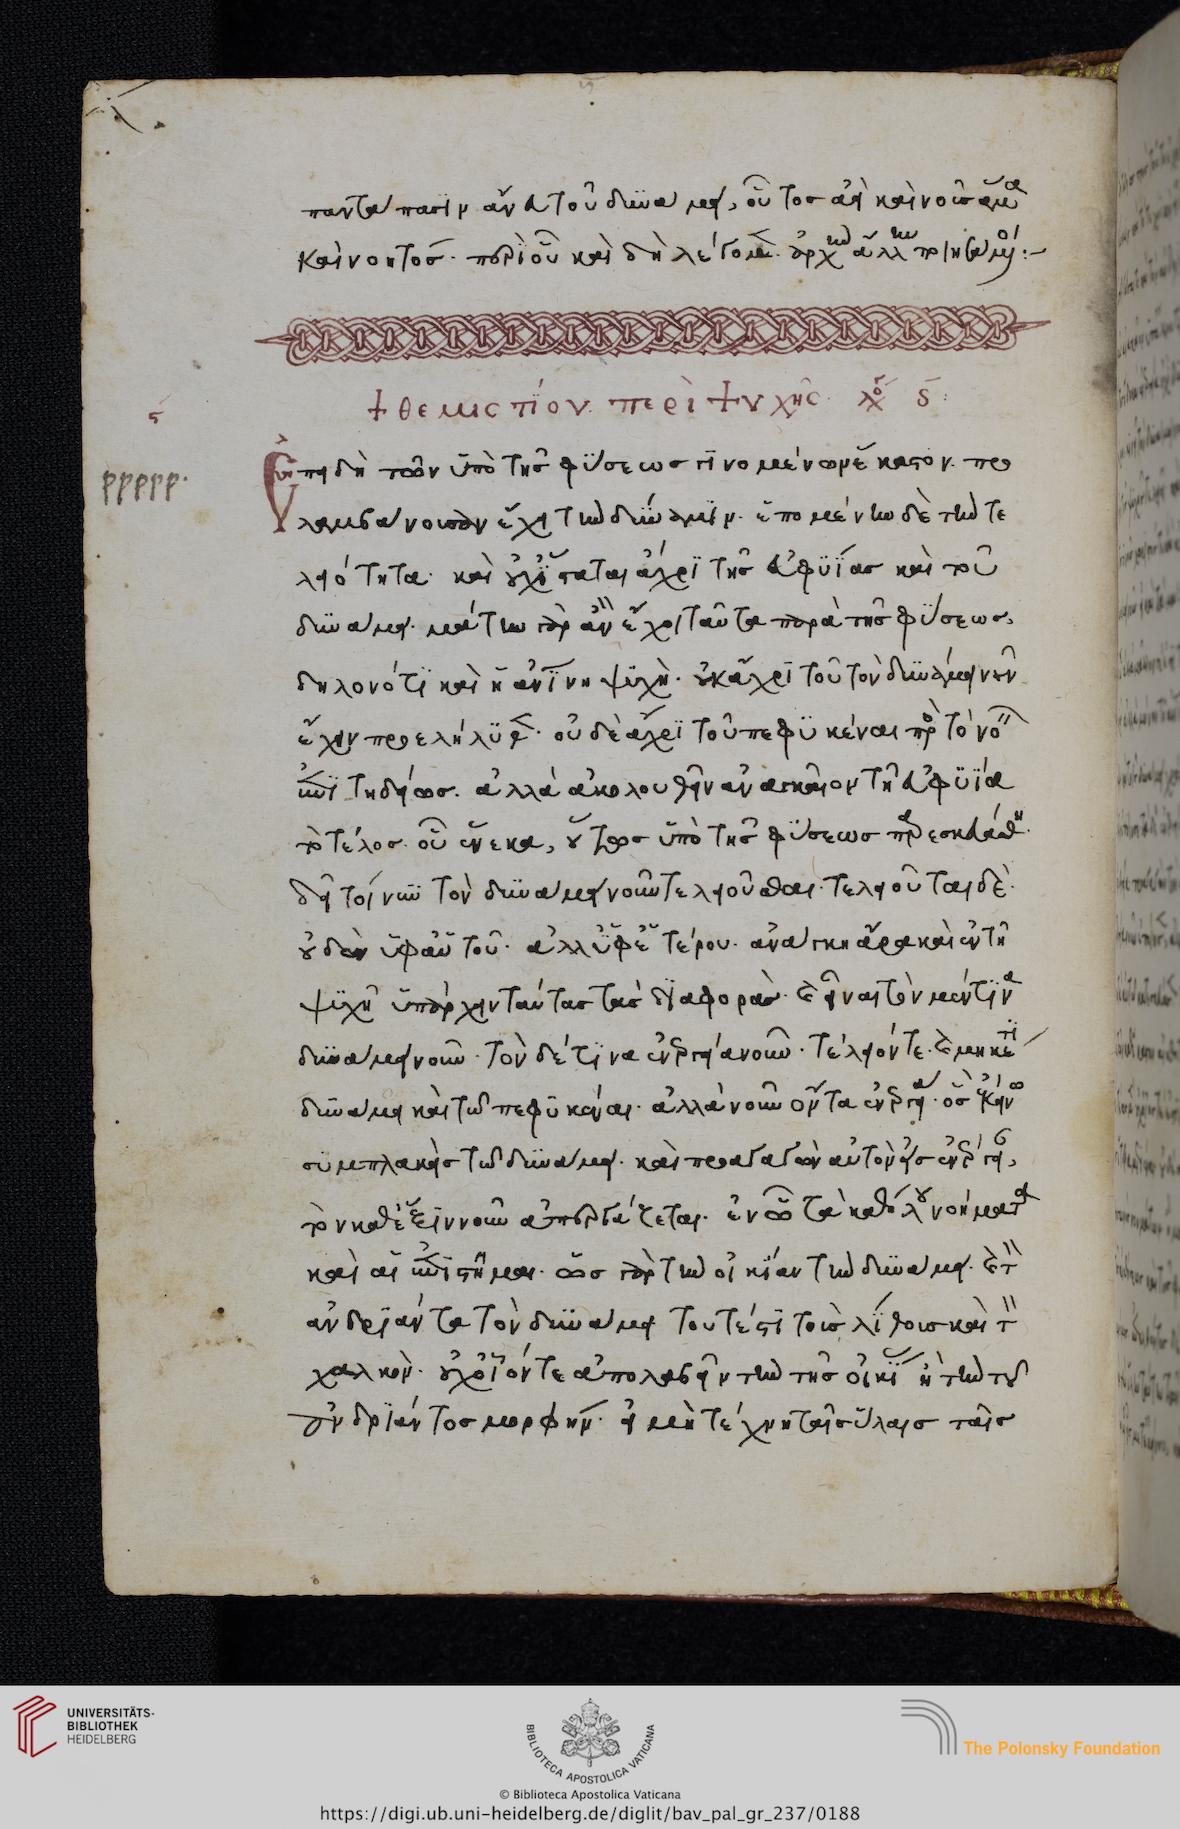 πανταπασιν ἂν εἴη τοῦ δυνάμει, οὗτος ἀεὶ καὶ νοῦς ἅμα
καὶ νοητός. περὶ οὗ καὶ δὴ λέγομεν ἀρχὴν ἄλλην ποιησάμενοι :-
+ θεμιστίου περὶ ψυχῆς λόγος ϛ :
ϛ
Ἐπειδὴ τῶν ὑπὸ τῆς φύσεως γινομένων ἕκαστον προ
λαμβάνουσαν ἔχει τὴν δύναμιν. ἑπομένην δὲ τὴν τε
λειότητα. καὶ οὐχ ἵσταται ἄχρι τῆς εὐφυΐας καὶ τοῦ
δυνάμει. μάτην γὰρ ἂν ἔχοι ταῦτα παρὰ τῆς φύσεως,
δηλονότι καὶ ἡ ἀνθρωπίνη ψυχή. οὐκ ἄχρι τοῦ τὸν δυνάμει νοῦν
ἔχειν προελήλυθεν. οὐδὲ ἄχρι τοῦ πεφυκέναι πρὸς τὸ νοεῖν
ἐπιτηδείως. ἀλλὰ ἀκολουθεῖν ἀναγκαῖον τῇ εὐφυΐα
τὸ τέλος οὗ ἕνεκα, οὕτως ὑπὸ τῆς φύσεως παρεσκευάσθη.
δεῖ τοίνυν τὸν δυνάμει νοῦν τελειοῦσθαι. τελειοῦται δὲ
οὐδὲν ὑφ' αὑτοῦ. ἀλλ' ὑφ' ἑτέρου. ἀνάγκη ἄρα καὶ ἐν τῇ
ψυχῇ ὑπάρχειν ταύτας τὰς διαφοράς. καὶ εἶναι τὸν μέν τινα
δυνάμει νοῦν. τὸν δέ τινα ἐνεργείᾳ νοῦν. τέλειόν τε. καὶ μηκέτι
δυνάμει καὶ τῷ πεφυκέναι. ἀλλὰ νοῦν ὄντα ἐνεργείᾳ. ὃς ἐκείνῳ
συμπλακεὶς τῷ δυνάμει. καὶ προαγαγὼν αὐτὸν εἰς ἐνέργειαν,
τὸν καθ' ἕξιν νοῦν ἀπεργάζεται. ἐν ᾧ τὰ καθόλου νοήματα
καὶ αἱ ἐπιστῆμαι. ὡς γὰρ τὴν οἰκίαν τὴν δυνάμει. καὶ τὸν
ἀνδριάντα τὸν δυνάμει τουτέστι τοῖς λίθοις καὶ τὸν
χαλκόν. οὐχ οἷόν τε ἀπολαβεῖν τὴν τῆς οἰκίας ἢ τὴν τοῦ
ἀνδριάντος μορφήν. εἰ μὴ τέχνη ταῖς ὕλαις ταῖς
UNIVERSITÄTS-
BIBLIOTHEK
HEIDELBERG
BIBLIOTECA APOSTOLICA VATICANA
The Polonsky Foundation
© Biblioteca Apostolica Vaticana
https://digi.ub.uni-heidelberg.de/diglit/bav_pal_gr_237/0188